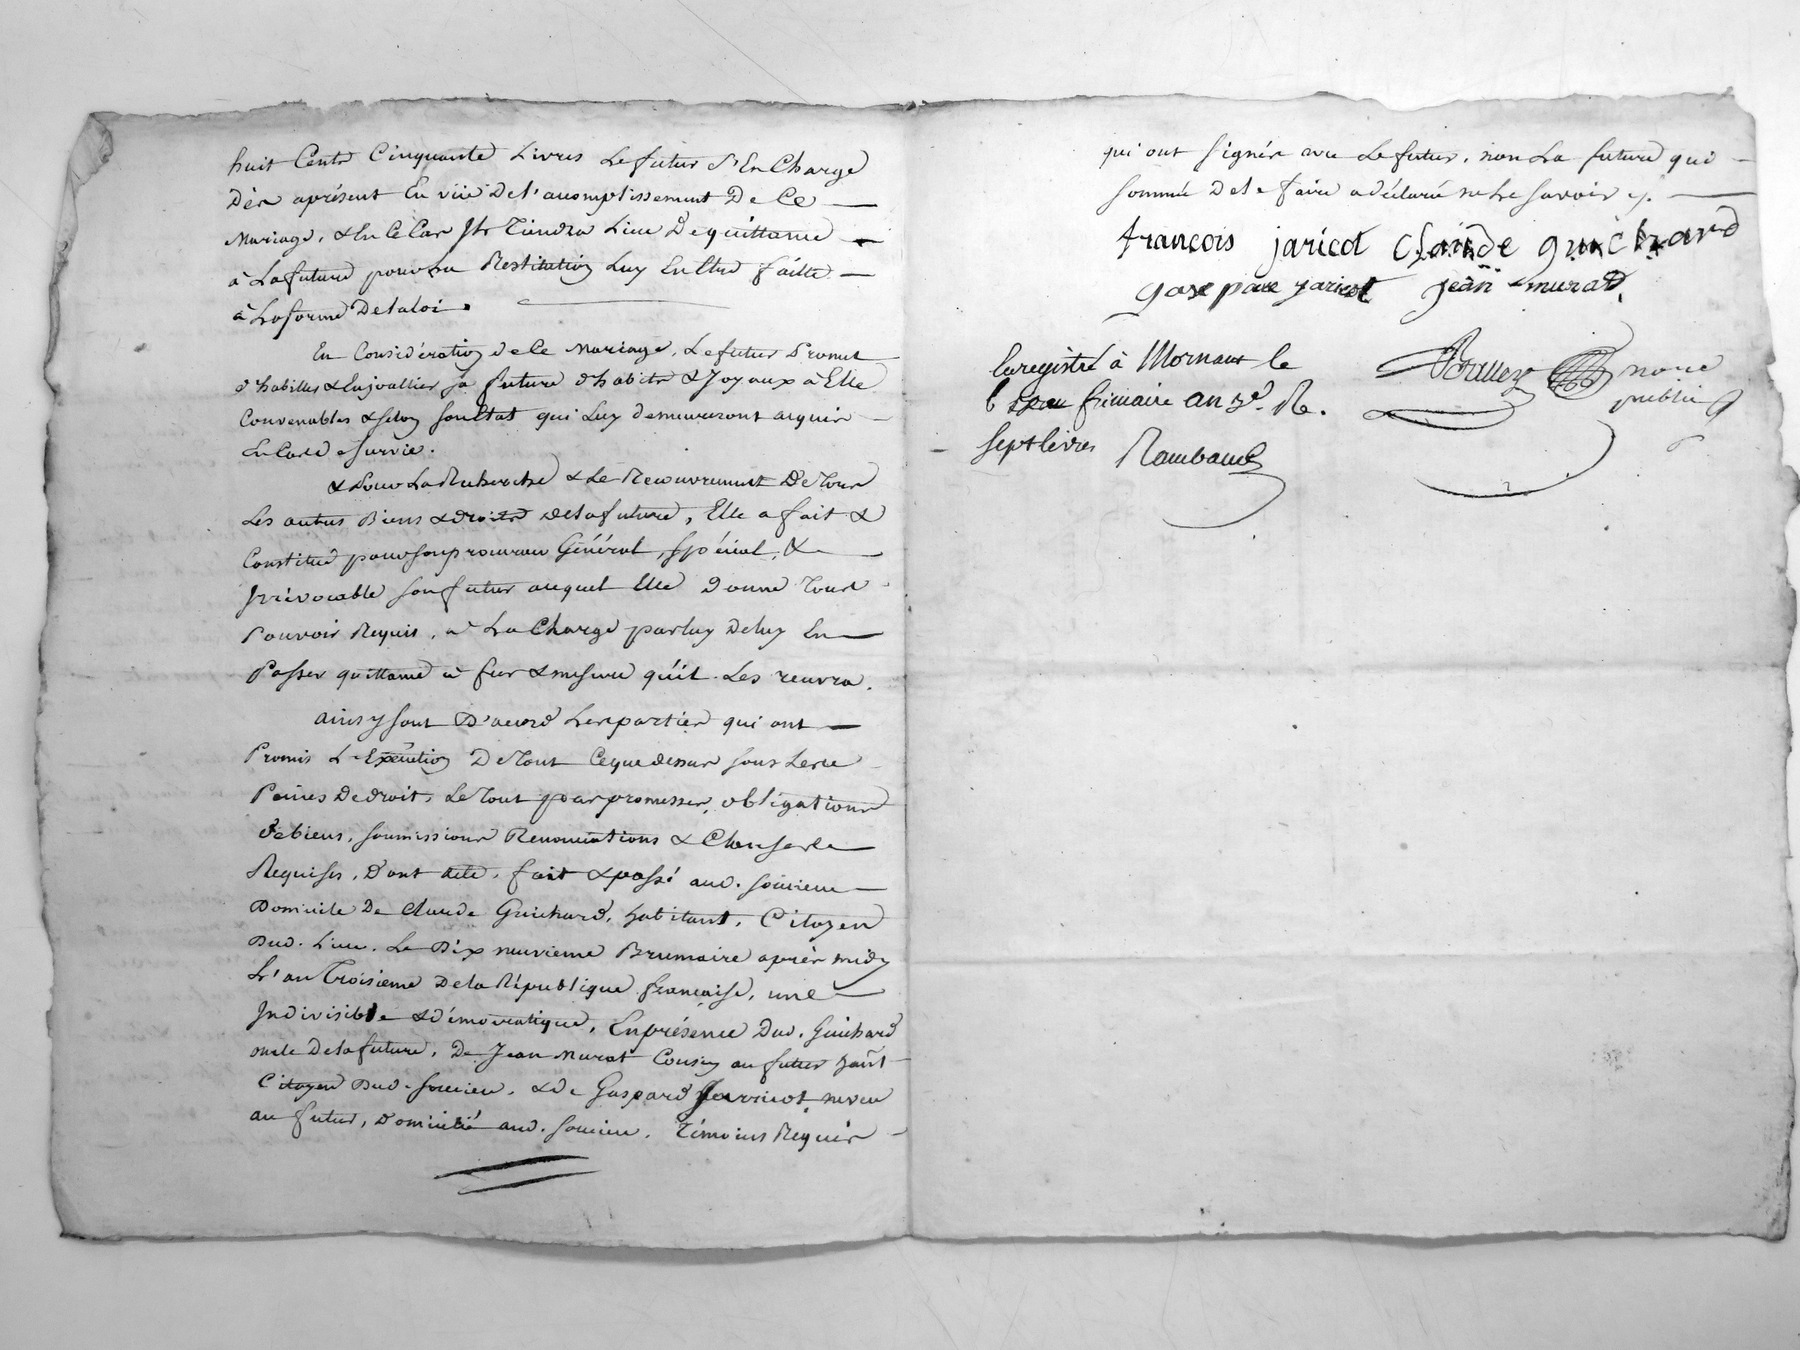 huit Cents Cinquante Livres Le futur s'En Charge
Dès aprésent En vüe De l'acomplissement De Ce
Mariage, & En Ce Cas Ils Tiendra Lieu De quittance
à La future pour La Restitution Luy En Etre faitte
à La forme De la loi.
En Considération de Ce Mariage, Le futur Promet
d'habiller & Enjoailler Sa future d'habits & Joyaux à Elle
Convenables & selon son Etat qui Luy demeureront acquis
En Cas de Survie.
& Pour La Recherche & Le Recouvrement De Tous
Les autres Biens & droits de la future, Elle a fait &
Constitué pour son procureur Général, Spécial, &
Irrévocable son futur auquel Elle Donne Tout
Pouvoir Requis, à La Charge par luy De luy En
Passer quittance à fur & mesure qu'il Les reuvra.
ainsy sont D'acord Les parties qui ont
Promis L'Exécution De Tout Ce que dessus sous Les
Peines De droit, Le Tout par promesses, obligations
de biens, soumissions Renonciations & Clauses
Requises, Dont acte, fait & passé aud. soucieu
Domicile De Claude Guichard, habitant, Citoyen
Dud. Lieu. Le Dix neuvieme Brumaire après midy
L'an Troisieme De la République française, une
Indivisible & démocratique, En présence Dud. Guichard
oncle De la future, De Jean Murat Cousin au futur habt
Citoyen Dud. soucieu, & de Gaspard Jarricot neveu
au futur, Domicilié aud. soucieu, Témoins Requis
qui ont signés avec Le futur, non La future qui
sommée De le faire a déclaré ne Le savoir %.
francois jaricot Claude guichard
gaspare jaricot jean murat
Enregistré à Mornant le
6 frimaire an 3e. R.
Sept livres Rambaud
notre
public